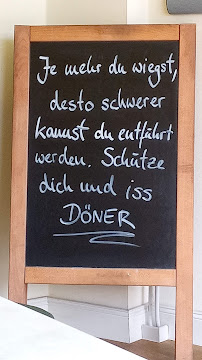 Je mehr du wiegst,
desto schwerer
kannst du entführt
werden. Schütze
dich und iss
DÖNER